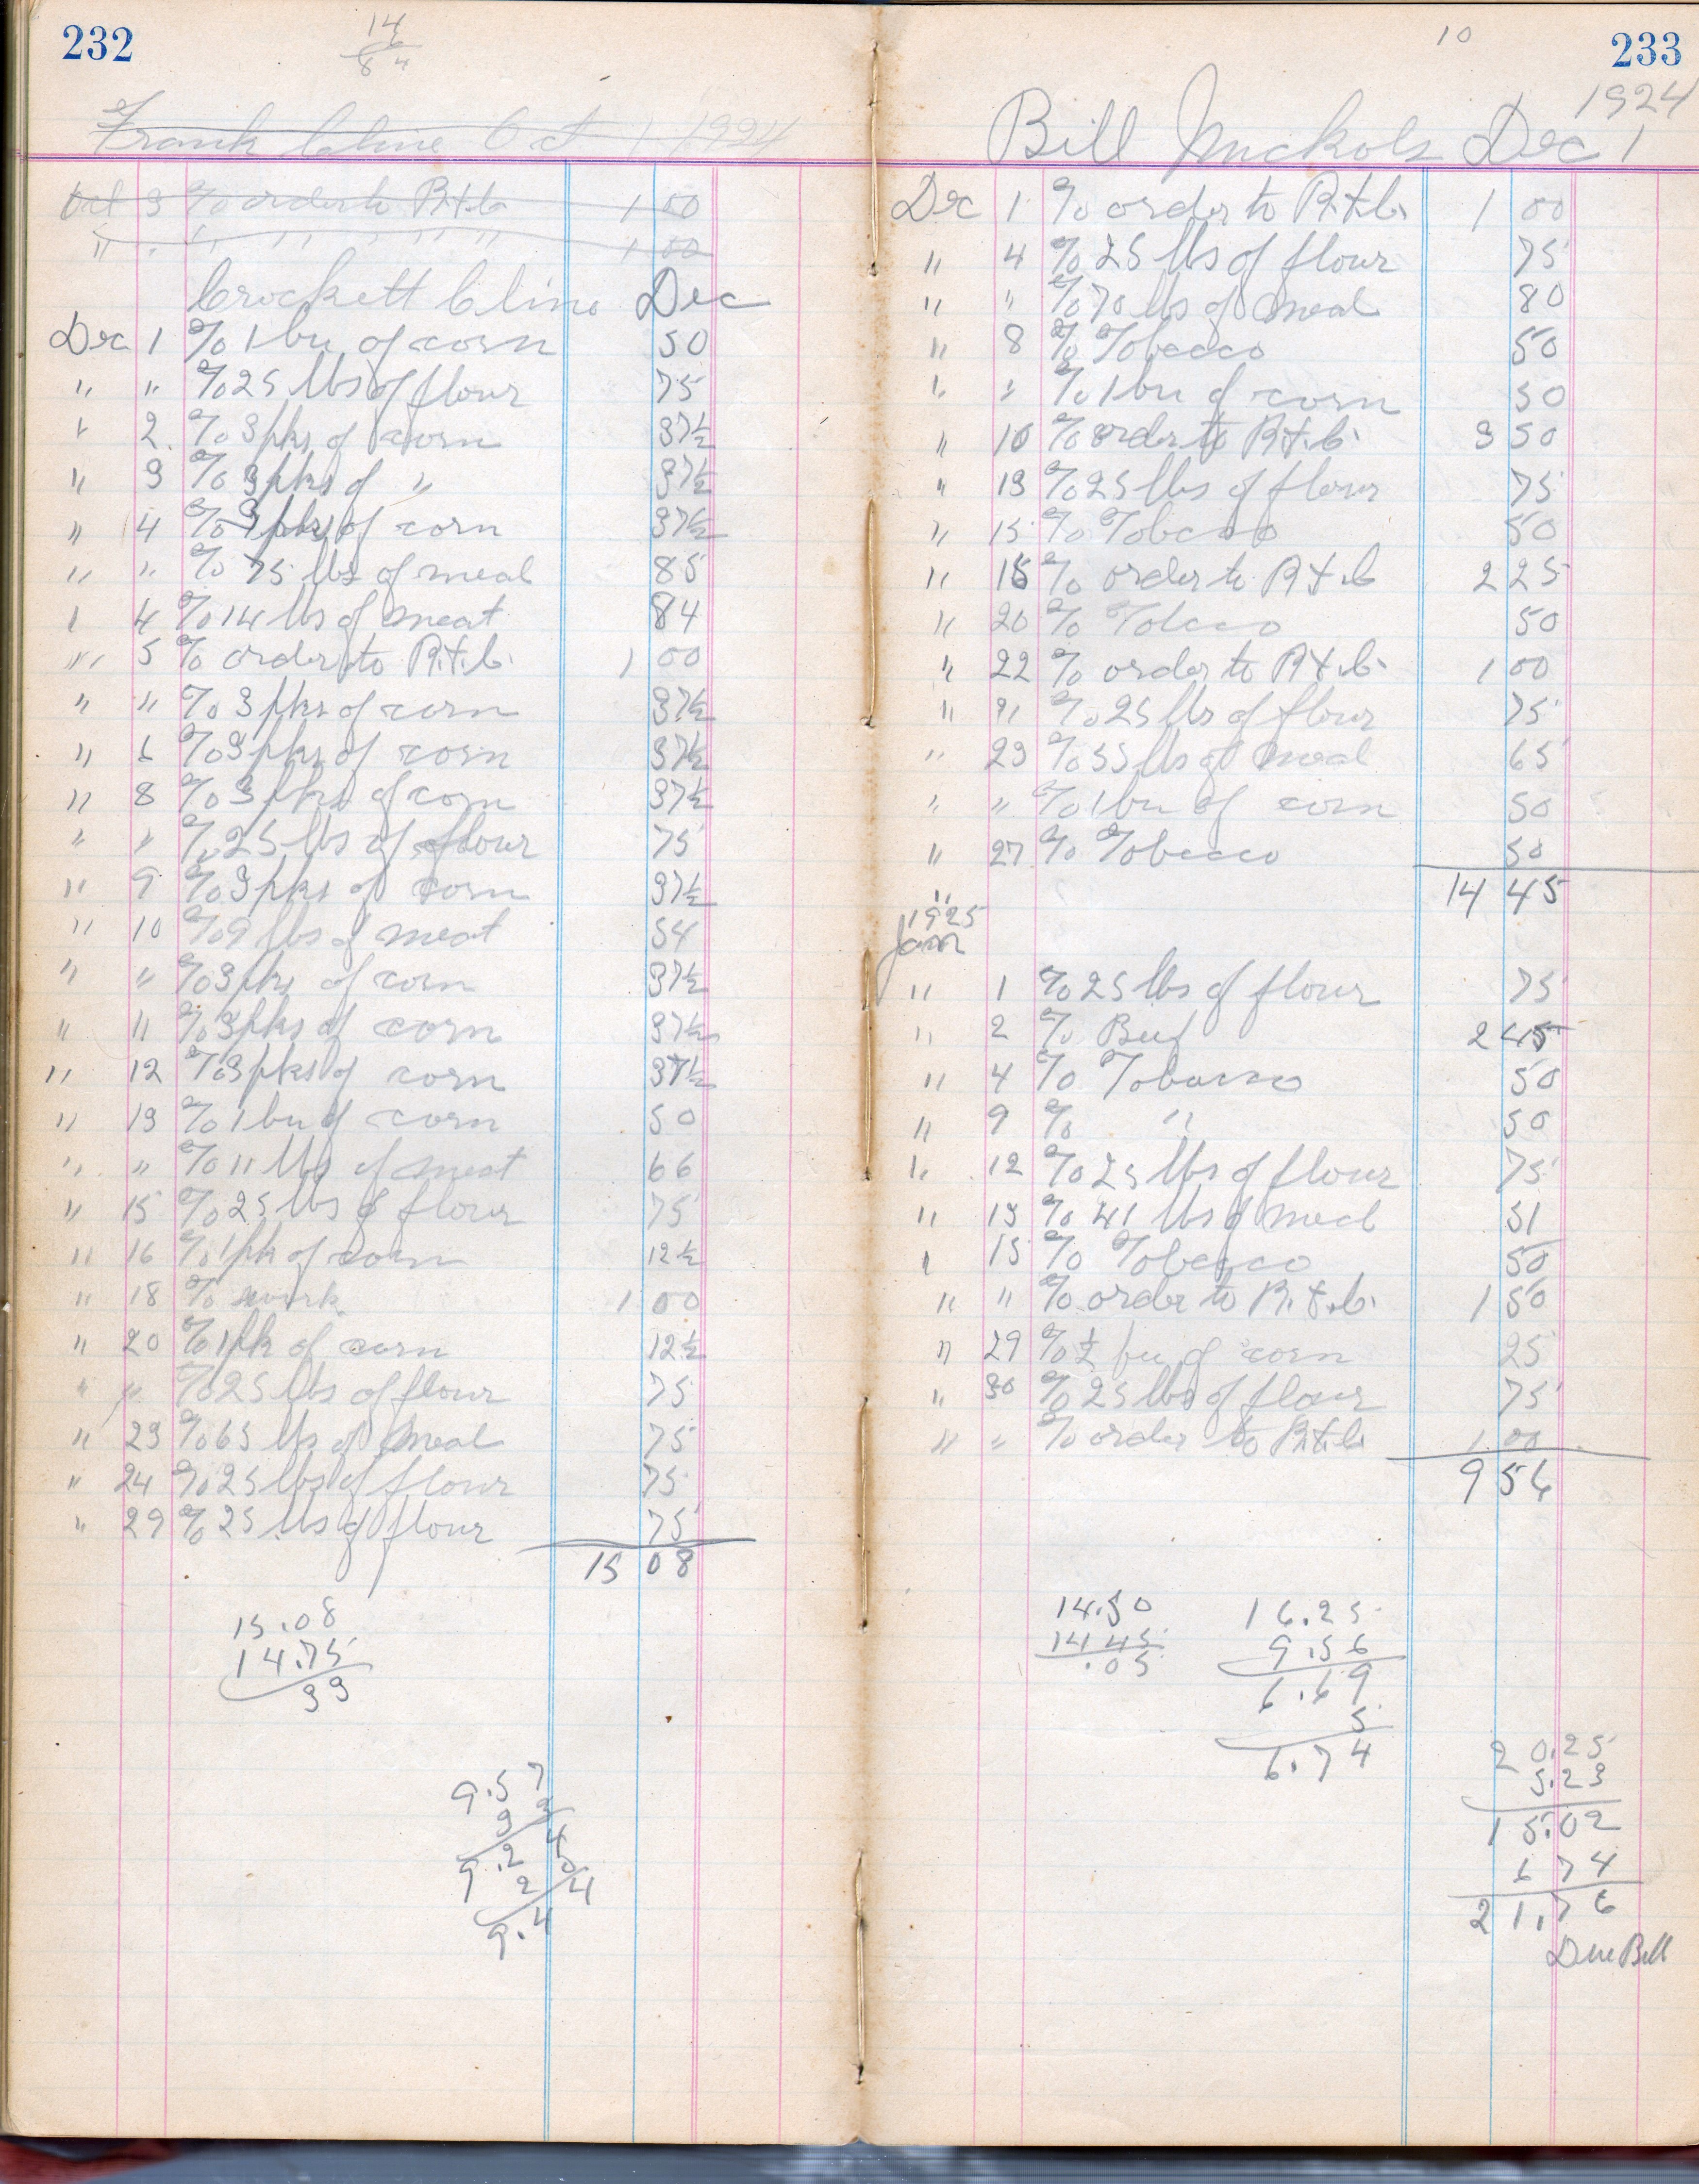 232
14
6
84
Frank Cline Oct 1 1924
Oct 3 % order to R.t.C. 1 00
" " " " " " " 1 00
Crockett Cline Dec
Dec 1 % 1 bu of corn 50
" " % 25 lbs of flour 75
" 2 % 3 pks of corn 37½
" 3 % 3 pks of " 37½
" 4 % 3 pks of corn 37½
" " % 75 lbs of meal 85
" 4 % 14 lbs of meat 84
" 5 % order to R.t.C. 1 00
" " % 3 pks of corn 37½
" 6 % 3 pks of corn 37½
" 8 % 3 pks of corn 37½
" " % 25 lbs of flour 75
" 9 % 3 pks of corn 37½
" 10 % 9 lbs of meat 54
" " % 3 pks of corn 37½
" 11 % 3 pks of corn 37½
" 12 % 3 pks of corn 37½
" 13 % 1 bu of corn 50
" " % 11 lbs of meat 66
" 15 % 25 lbs of flour 75
" 16 % 1 pk of corn 12½
" 18 % work 1 00
" 20 % 1 pk of corn 12½
" " % 25 lbs of flour 75
" 23 % 65 lbs of meal 75
" 24 % 25 lbs of flour 75
" 29 % 25 lbs of flour 75
15 08
15.08
14.75
33
9.57
33
9.24
9.44
10
233
1924
Bill Nuckols Dec 1
Dec 1 % order to R.t.C. 1 00
" 4 % 25 lbs of flour 75
" " % 70 lbs of meal 80
" 8 % Tobacco 50
" " % 1 bu of corn 50
" 10 % order to R.t.C. 3 50
" 13 % 25 lbs of flour 75
" 15 % Tobcco 50
" 15 % order to R.t.C 2 25
" 20 % Tobcco 50
" 22 % order to R.t.C. 1 00
" " % 25 lbs of flour 75
" 23 % 55 lbs of meal 65
" " % 1 bu of corn 50
" 27 % Tobacco 50
14 45
"
1925
Jan
" 1 % 25 lbs of flour 75
" 2 % Beef 2 45
" 4 % Tobacco 50
" 9 % " 50
" 12 % 25 lbs of flour 75
" 13 % 41 lbs of meal 51
" 15 % Tobacco 50
" " % order to R.t.C. 1 50
" 29 % ½ bu of corn 25
" 30 % 25 lbs of flour 75
" " % order to R.t.C. 1 00
9 56
14.50
14 45
.05
16.25
9.56
6.69
5
6.74
20.25
5.23
15.02
6 74
21.76
Due Bill